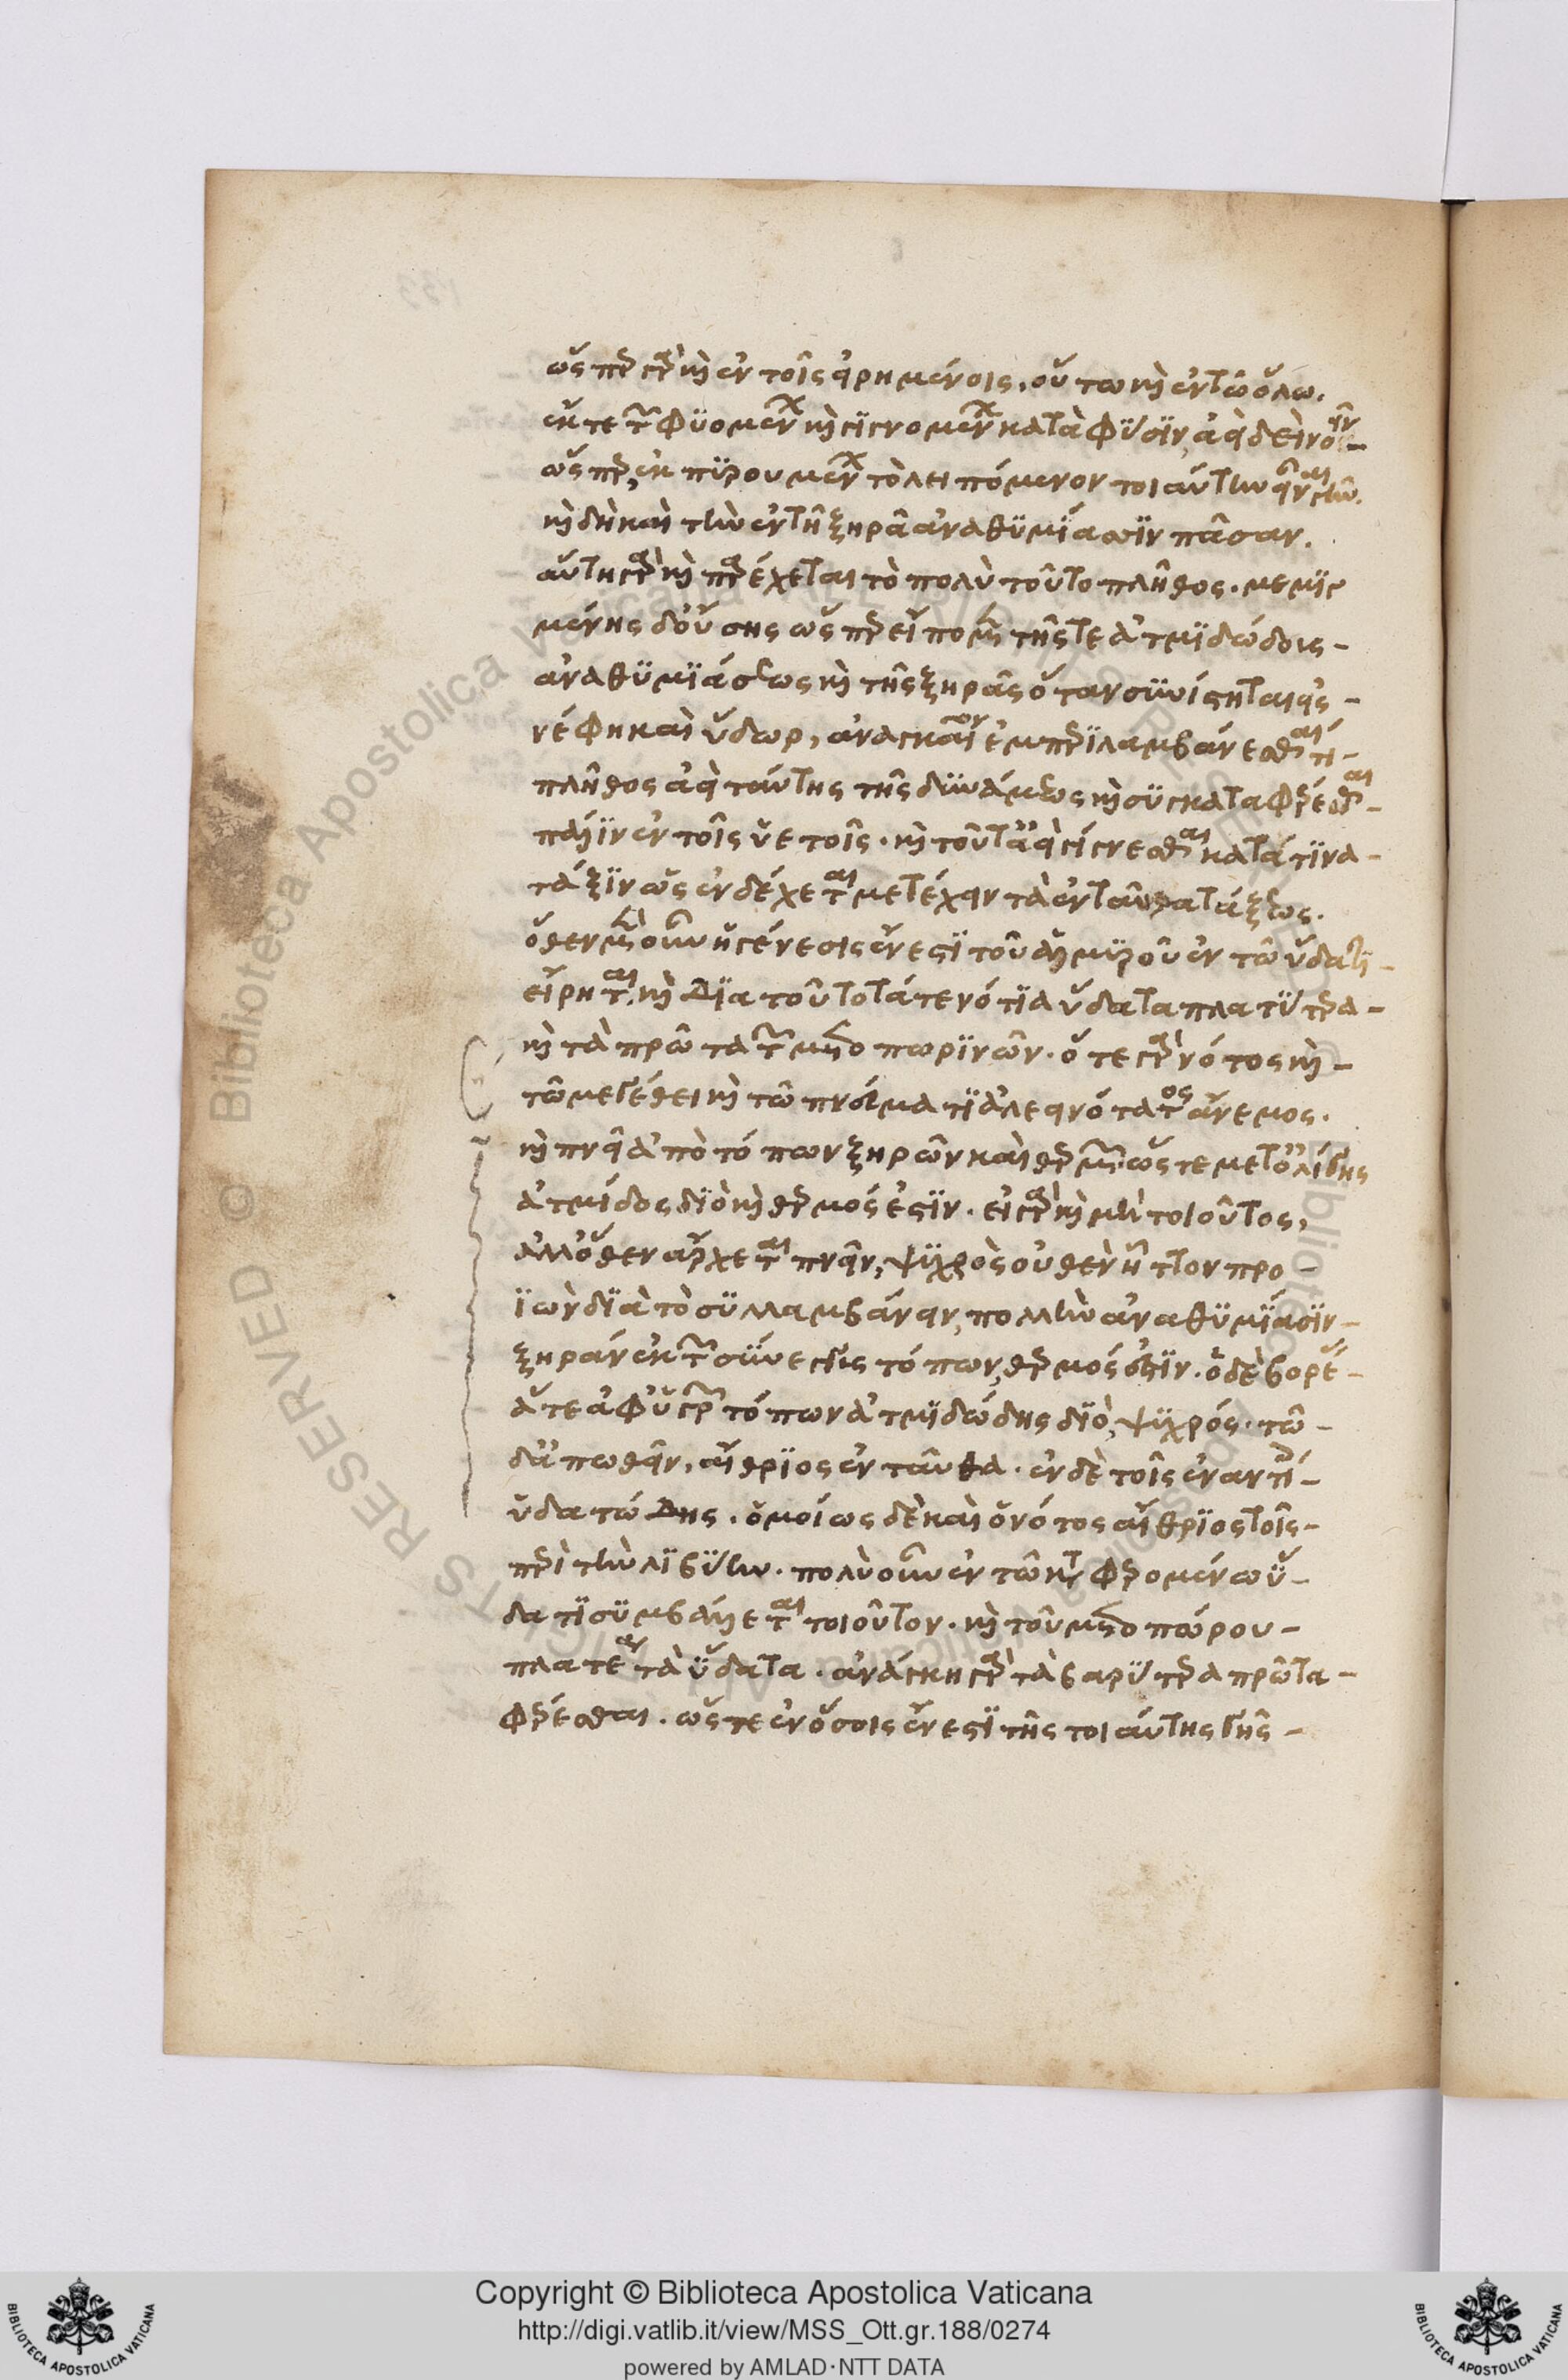 ὥσπερ γὰρ καὶ ἐν τοῖς εἰρημένοις, οὕτω καὶ ἐν τῷ ὅλῳ.
ἔκ τε τῶν φυομένων καὶ γιγνομένων κατὰ φύσιν, ἀεὶ δεῖ νοεῖν
ὥσπερ, ἐκ πυρουμένων τὸ λειπόμενον τοιαύτην εἶναι γῆν.
καὶ δὴ καὶ τὴν ἐν τῇ ξηρᾷ ἀναθυμίασιν πᾶσαν.
αὕτη γὰρ καὶ παρέχεται τὸ πολὺ τοῦτο πλῆθος. μεμιγ
μένης δ' οὔσης ὥσπερ εἴπομεν τῆς τε ἀτμιδώδους
ἀναθυμιάσεως καὶ τῆς ξηρᾶς ὅταν συνίστηται εἰς
νέφη καὶ ὕδωρ, ἀναγκαῖον ἐμπεριλαμβάνεσθαί τι
πλῆθος ἀεὶ ταύτης τῆς δυνάμεως καὶ συγκαταφέρεσθαι
πάλιν ἐν τοῖς ὑετοῖς. καὶ τοῦτ' ἀεὶ γίγνεσθαι κατά τινα
τάξιν ὡς ἐνδέχεται μετέχειν τὰ ἐνταῦθα τάξεως.
ὅθεν μὲν οὖν ἡ γένεσις ἔνεστι τοῦ ἁλμυροῦ ἐν τῷ ὕδατι
εἴρηται. καὶ διὰ τοῦτο τά τε νότια ὕδατα πλατύτερα
καὶ τὰ πρῶτα τῶν μετοπωρινῶν. ὅ τε γὰρ νότος καὶ
τῷ μεγέθει καὶ τῷ πνεύματι ἀλεεινότατος ἄνεμος.
καὶ πνεῖ ἀπὸ τόπων ξηρῶν καὶ θερμῶν ὥστε μετ' ὀλίγης
ἀτμίδος διὸ καὶ θερμός ἐστιν. εἰ γὰρ καὶ μὴ τοιοῦτος,
ἀλλ' ὅθεν ἄρχεται πνεῖν, ψυχρὸς οὐθὲν ἧττον προ
ϊὼν διὰ τὸ συλλαμβάνειν, πολλὴν ἀναθυμίασιν
ξηρὰν ἐκ τῶν σύνεγγυς τόπων, θερμός ἐστιν. ὁ δὲ βορέ
ἅτε ἀφ' ὑγρῶν τόπων ἀτμιδώδης διὸ, ψυχρός. τῷ
δ' ἀπωθεῖν, αἴθριος ἐνταῦθα. ἐν δὲ τοῖς ἐναντί
ὑδατώδης. ὁμοίως δὲ καὶ ὁ νότος αἴθριος τοῖς
περὶ τὴν λιβύην. πολὺ οὖν ἐν τῷ καταφερομένῳ ὕ
δατι συμβάλλεται τοιοῦτον. καὶ τοῦ μετοπώρου
πλατέα τὰ ὕδατα. ἀνάγκη γὰρ τὰ βαρύτερα πρῶτα
φέρεσθαι. ὥστε ἐν ὅσοις ἔνεστι τῆς τοιαύτης γῆς
Copyright © Biblioteca Apostolica Vaticana
http://digi.vatlib.it/view/MSS_Ott.gr.188/0274
powered by AMLAD·NTT DATA